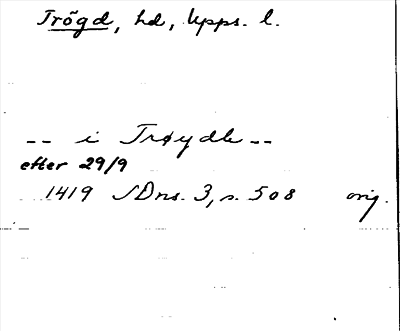 Trögd, hd, Upps. l.
-- i Trøydh --
efter 29/9
1419 SDns. 3, s. 508 orig.